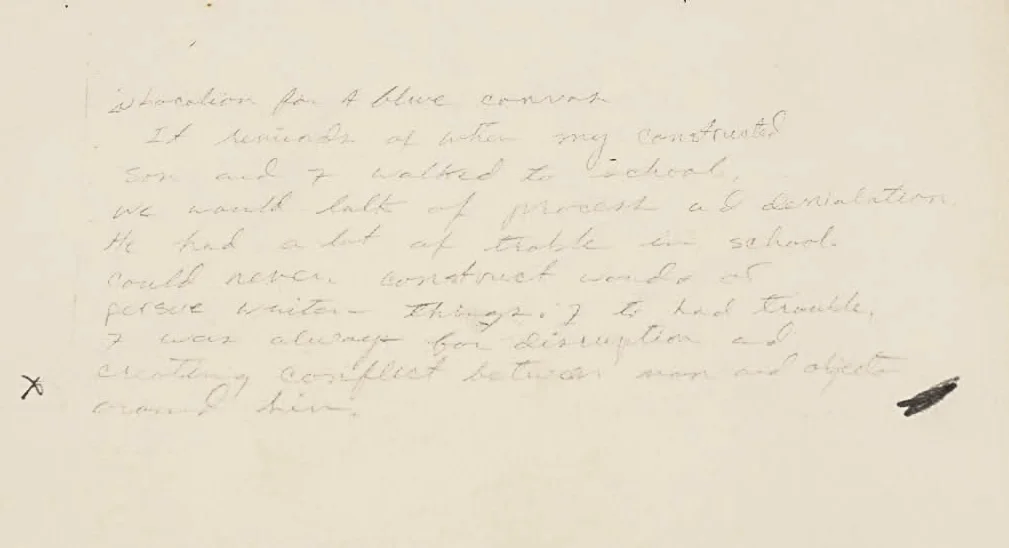 Location for A blue canvas
It reminds of when my constructed
son and I walked to school.
we would talk of process ad
He had a lot of troble in school.
could never. construct words or
persue writen - things. I to had trouble.
I was always for disruption and
creating conflict between man and objects
around him.